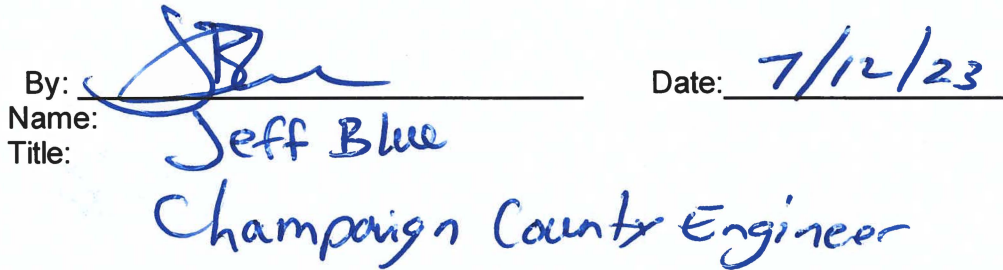 By: Date: 7/12/23
Name: Jeff Blue
Title:
Champaign County Engineer